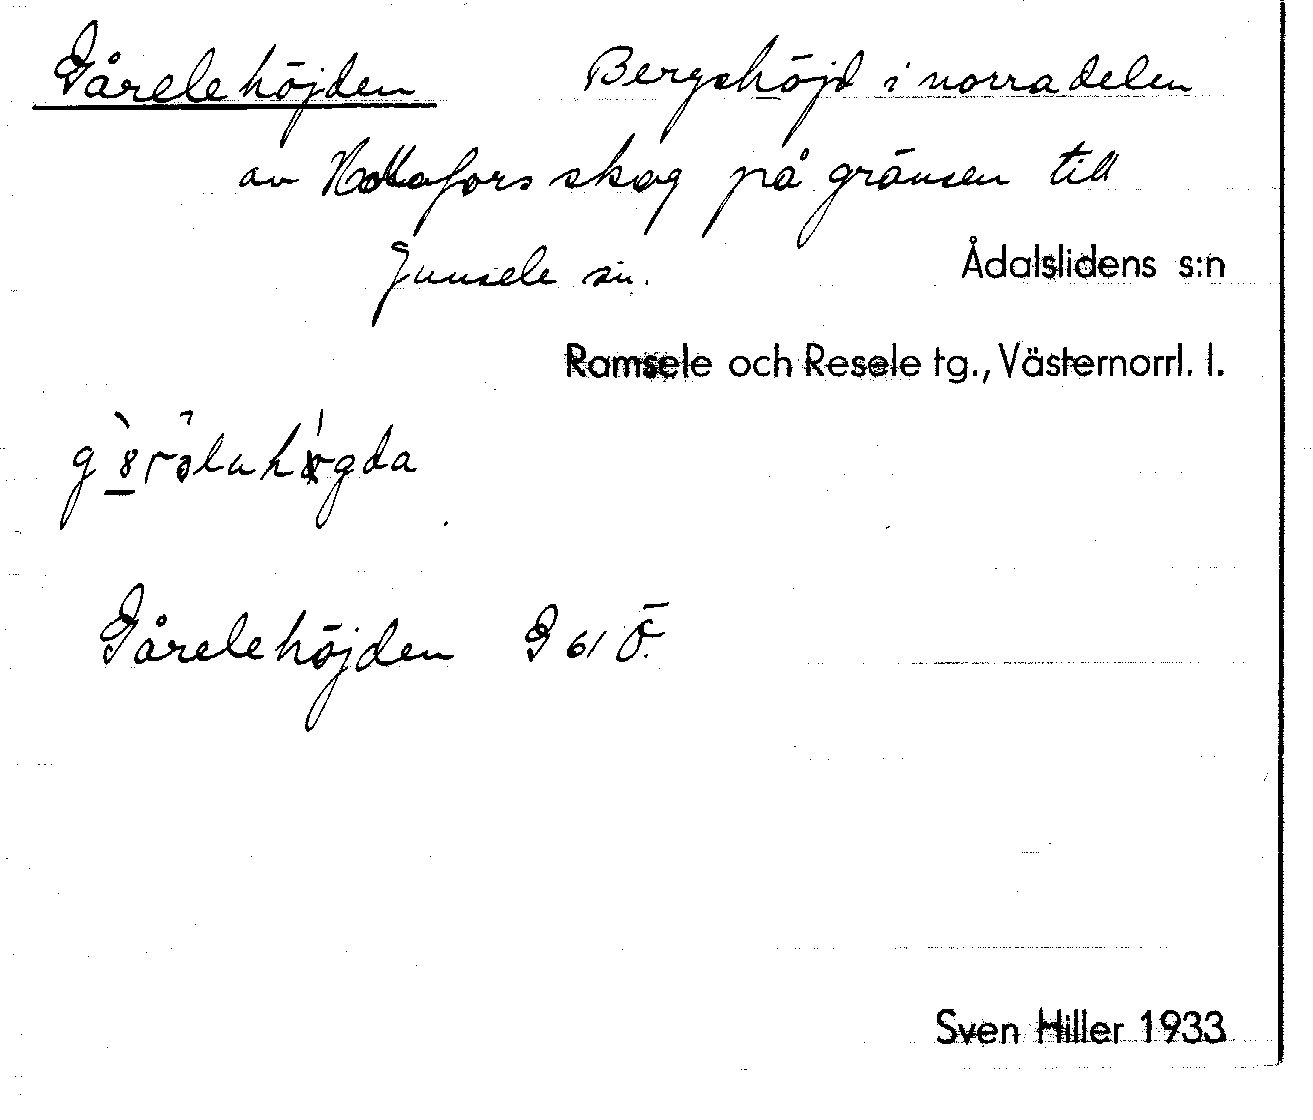 Gårelehöjden Bergshöjd i norra delen
av Hollafors skog på gränsen till
Junsele sn.
Ådalslidens s:n
Ramsele och Resele tg., Västernorrl. l.
Gårelehöjden G 61 Ö.
Sven Hiller 1933